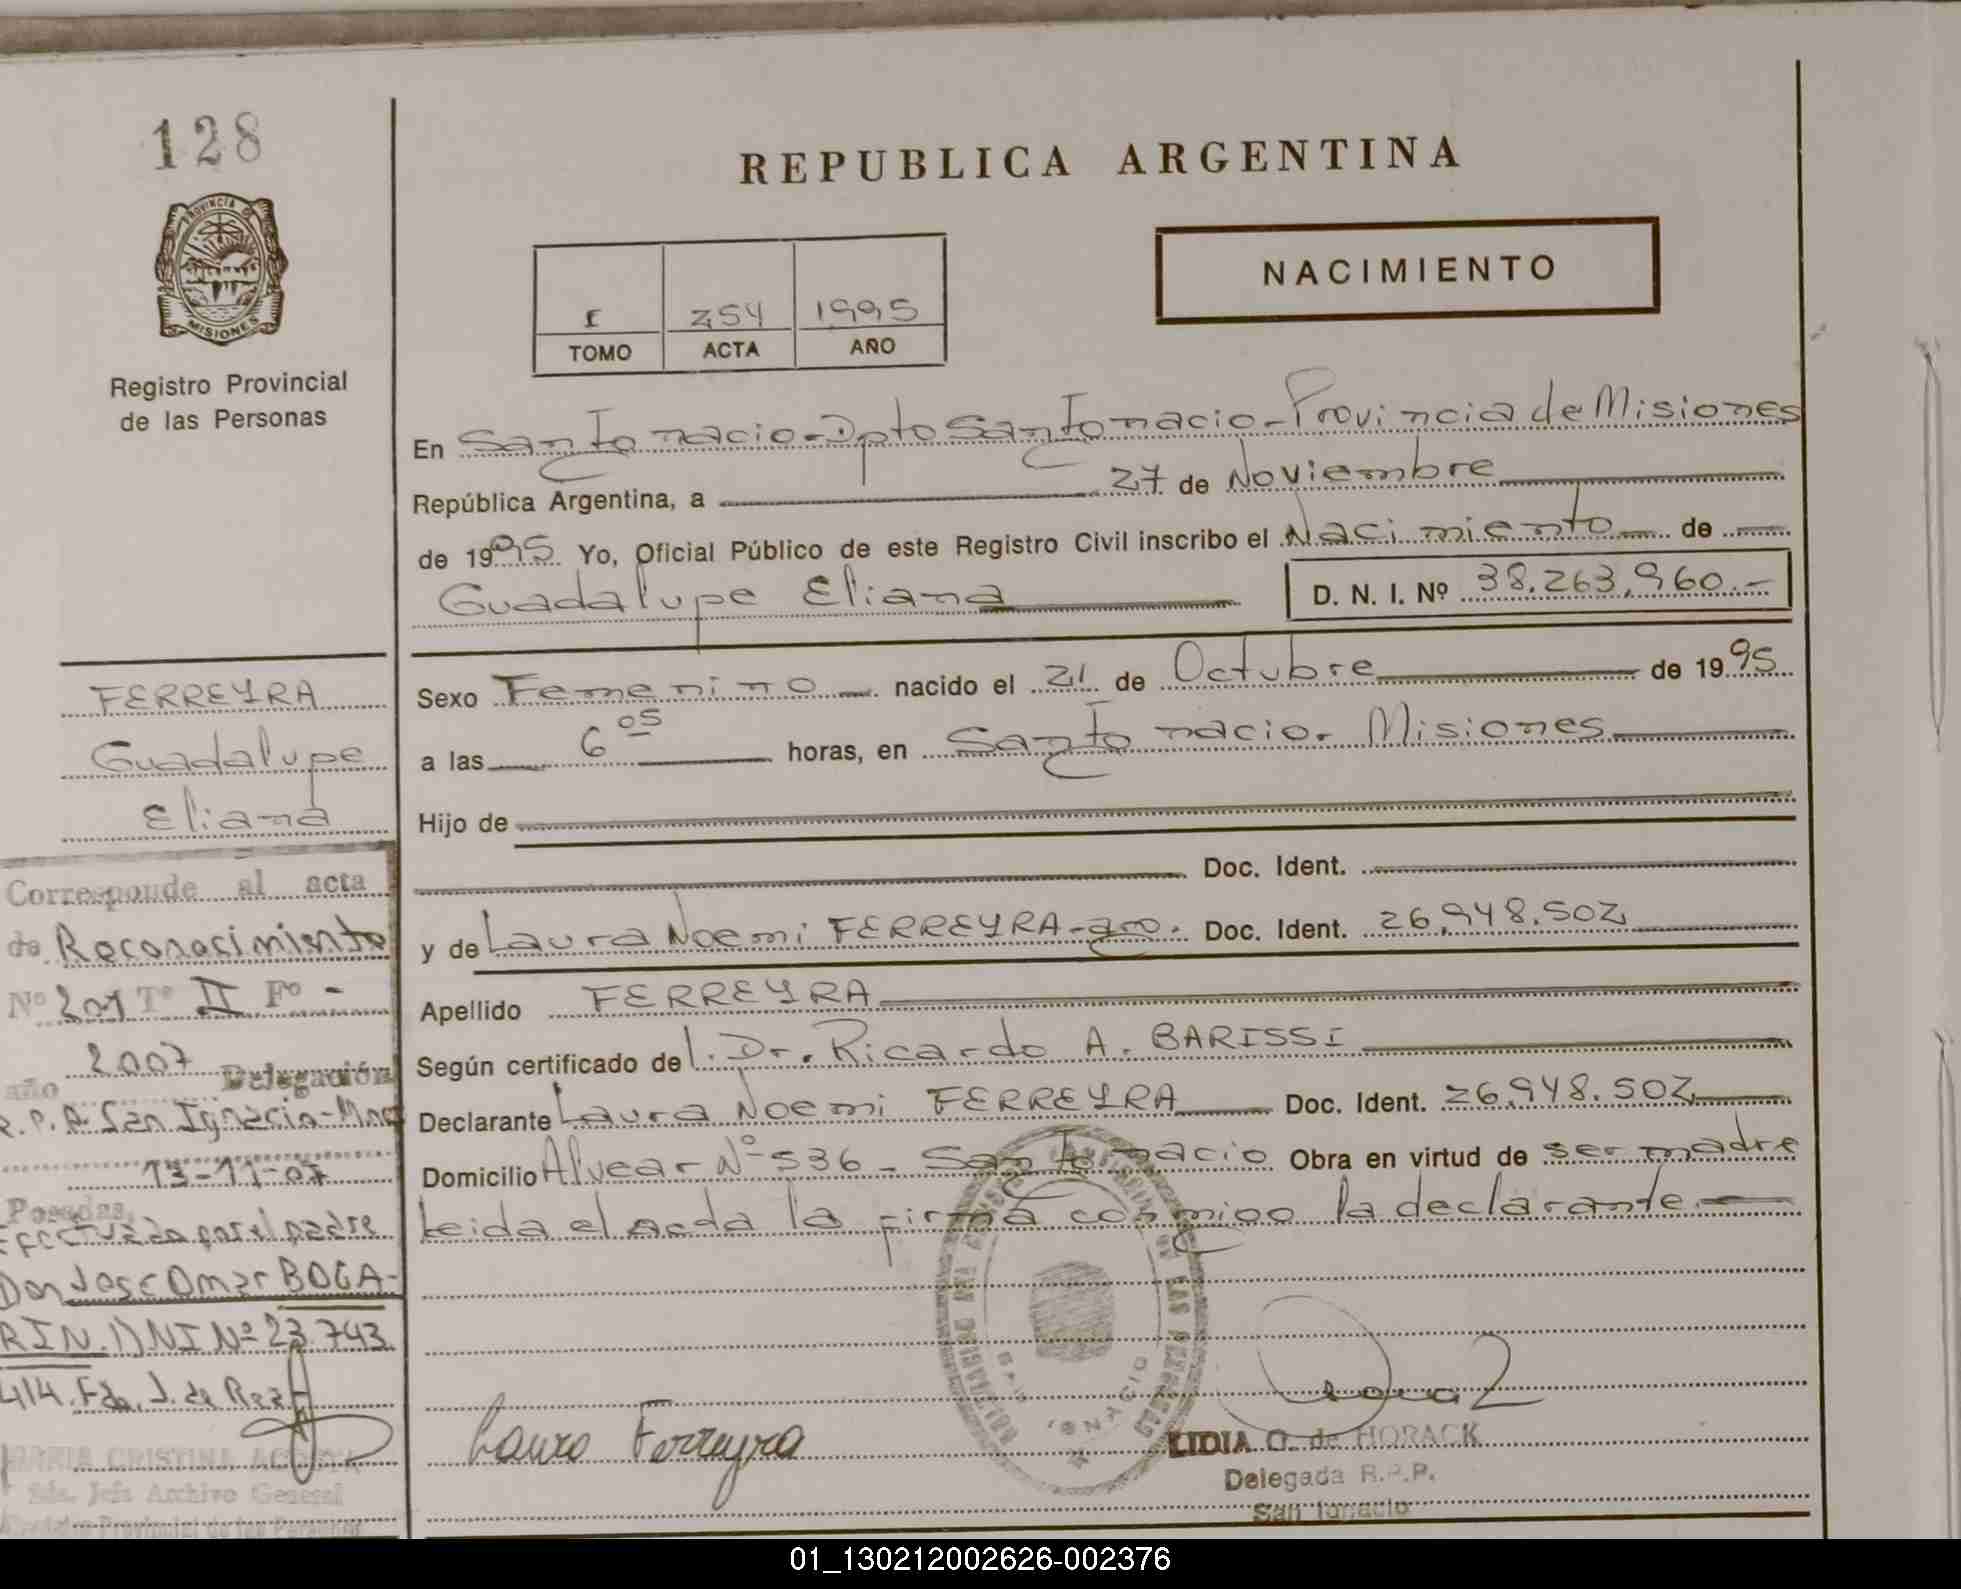 128
PROVINCIA DE
MISIONES
Registro Provincial
de las Personas
FERREYRA
Guadalupe
Eliana
Corresponde al acta
de Reconocimiento
Nº 201 Tº II Fº -
año 2007 Delegación
R.P.P. San Ignacio - Mnes
13-11-07
Posadas,
Efectuada por el padre
Don Jose Omar BOGA-
RIN. DNI Nº 23.743.
414. Fdo. J. de
MARIA CRISTINA ACOSTA
Sda. Jefa Archivo General
REPUBLICA ARGENTINA
NACIMIENTO
I 254 1995
TOMO ACTA AÑO
En San Ignacio - Dpto San Ignacio - Provincia de Misiones
República Argentina, a 27 de Noviembre
de 1995 Yo, Oficial Público de este Registro Civil inscribo el Nacimiento de
Guadalupe Eliana D. N. I. Nº 38.263.960.-
Sexo Femenino nacido el 21 de Octubre de 1995
a las 6 05 horas, en San Ignacio. Misiones
Hijo de
Doc. Ident.
y de Laura Noemi FERREYRA - arg. Doc. Ident. 26.948.502
Apellido FERREYRA
Según certificado de l. Dr. Ricardo A. BARISSI
Declarante Laura Noemi FERREYRA Doc. Ident. 26.948.502
Domicilio Alvear Nº 536 - San Ignacio Obra en virtud de ser madre
Leida el acda la firma conmigo la declarante.
Laura Ferreyra
SAN IGNACIO
LIDIA O. de HORACK
Delegada R.P.P.
San Ignacio
01_130212002626-002376